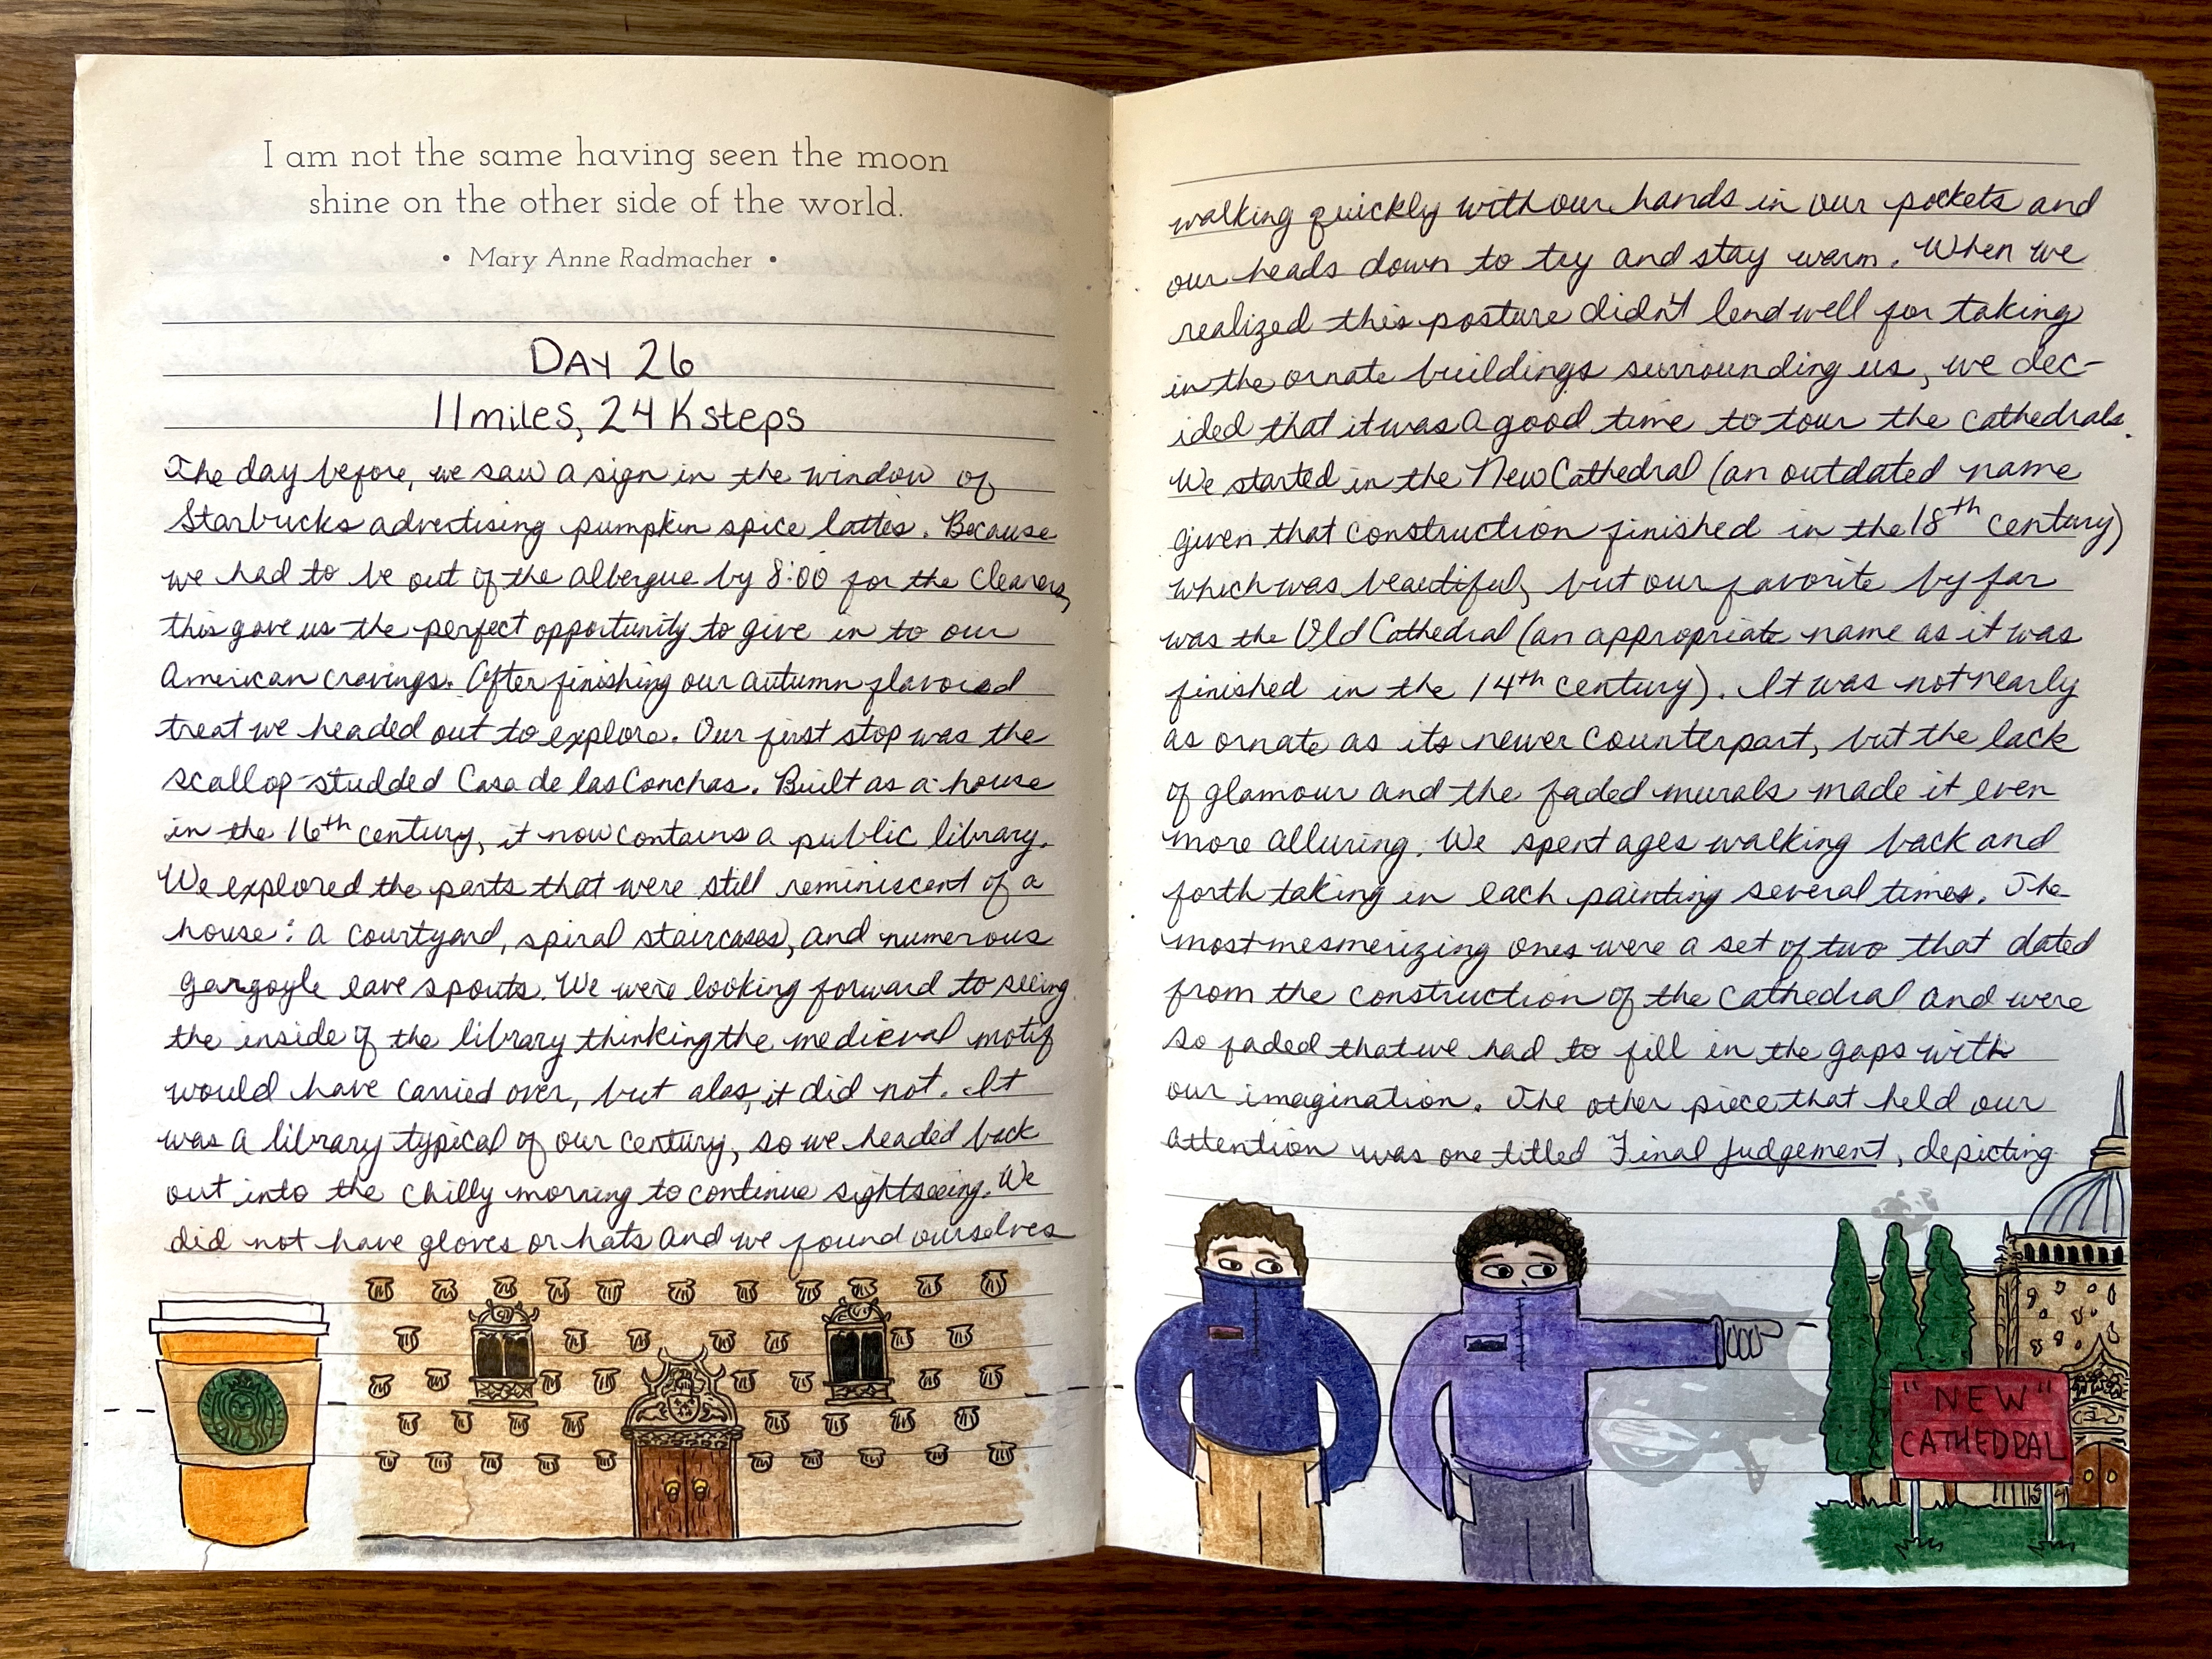 I am not the same having seen the moon
shine on the other side of the world.
• Mary Anne Radmacher •
DAY 26
11 miles, 24K steps
The day before, we saw a sign in the window of
Starbucks advertising pumpkin spice lattes. Because
we had to be out of the albergue by 8:00 for the cleaners,
this gave us the perfect opportunity to give in to our
American cravings. After finishing our autumn flavored
treat we headed out to explore. Our first stop was the
scallop-studded Casa de las Conchas. Built as a house
in the 16th century, it now contains a public library.
We explored the parts that were still reminiscent of a
house: a courtyard, spiral staircases, and numerous
gargoyle eave spouts. We were looking forward to seeing
the inside of the library thinking the medieval motif
would have carried over, but alas, it did not. It
was a library typical of our century, so we headed back
out into the chilly morning to continue sightseeing. We
did not have gloves or hats and we found ourselves
walking quickly with our hands in our pockets and
our heads down to try and stay warm. When we
realized this posture didn't lend well for taking
in the ornate buildings surrounding us, we dec-
ided that it was a good time to tour the cathedrals.
We started in the New Cathedral (an outdated name
given that construction finished in the 18th century)
which was beautiful, but our favorite by far
was the Old Cathedral (an appropriate name as it was
finished in the 14th century). It was not nearly
as ornate as its newer counterpart, but the lack
of glamour and the faded murals made it even
more alluring. We spent ages walking back and
forth taking in each painting several times. The
most mesmerizing ones were a set of two that dated
from the construction of the cathedral and were
so faded that we had to fill in the gaps with
our imagination. The other piece that held our
attention was one titled Final Judgement, depicting
"NEW"
CATHEDRAL